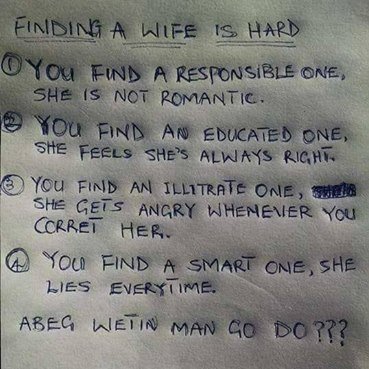 FINDING A WIFE IS HARD
① YOU FIND A RESPONSIBLE ONE,
SHE IS NOT ROMANTIC.
② YOU FIND AN EDUCATED ONE,
SHE FEELS SHE'S ALWAYS RIGHT.
③ YOU FIND AN ILLITRATE ONE,
SHE GETS ANGRY WHENEVER YOU
CORRET HER.
④ YOU FIND A SMART ONE, SHE
LIES EVERYTIME.
ABEG WETIN MAN GO DO???